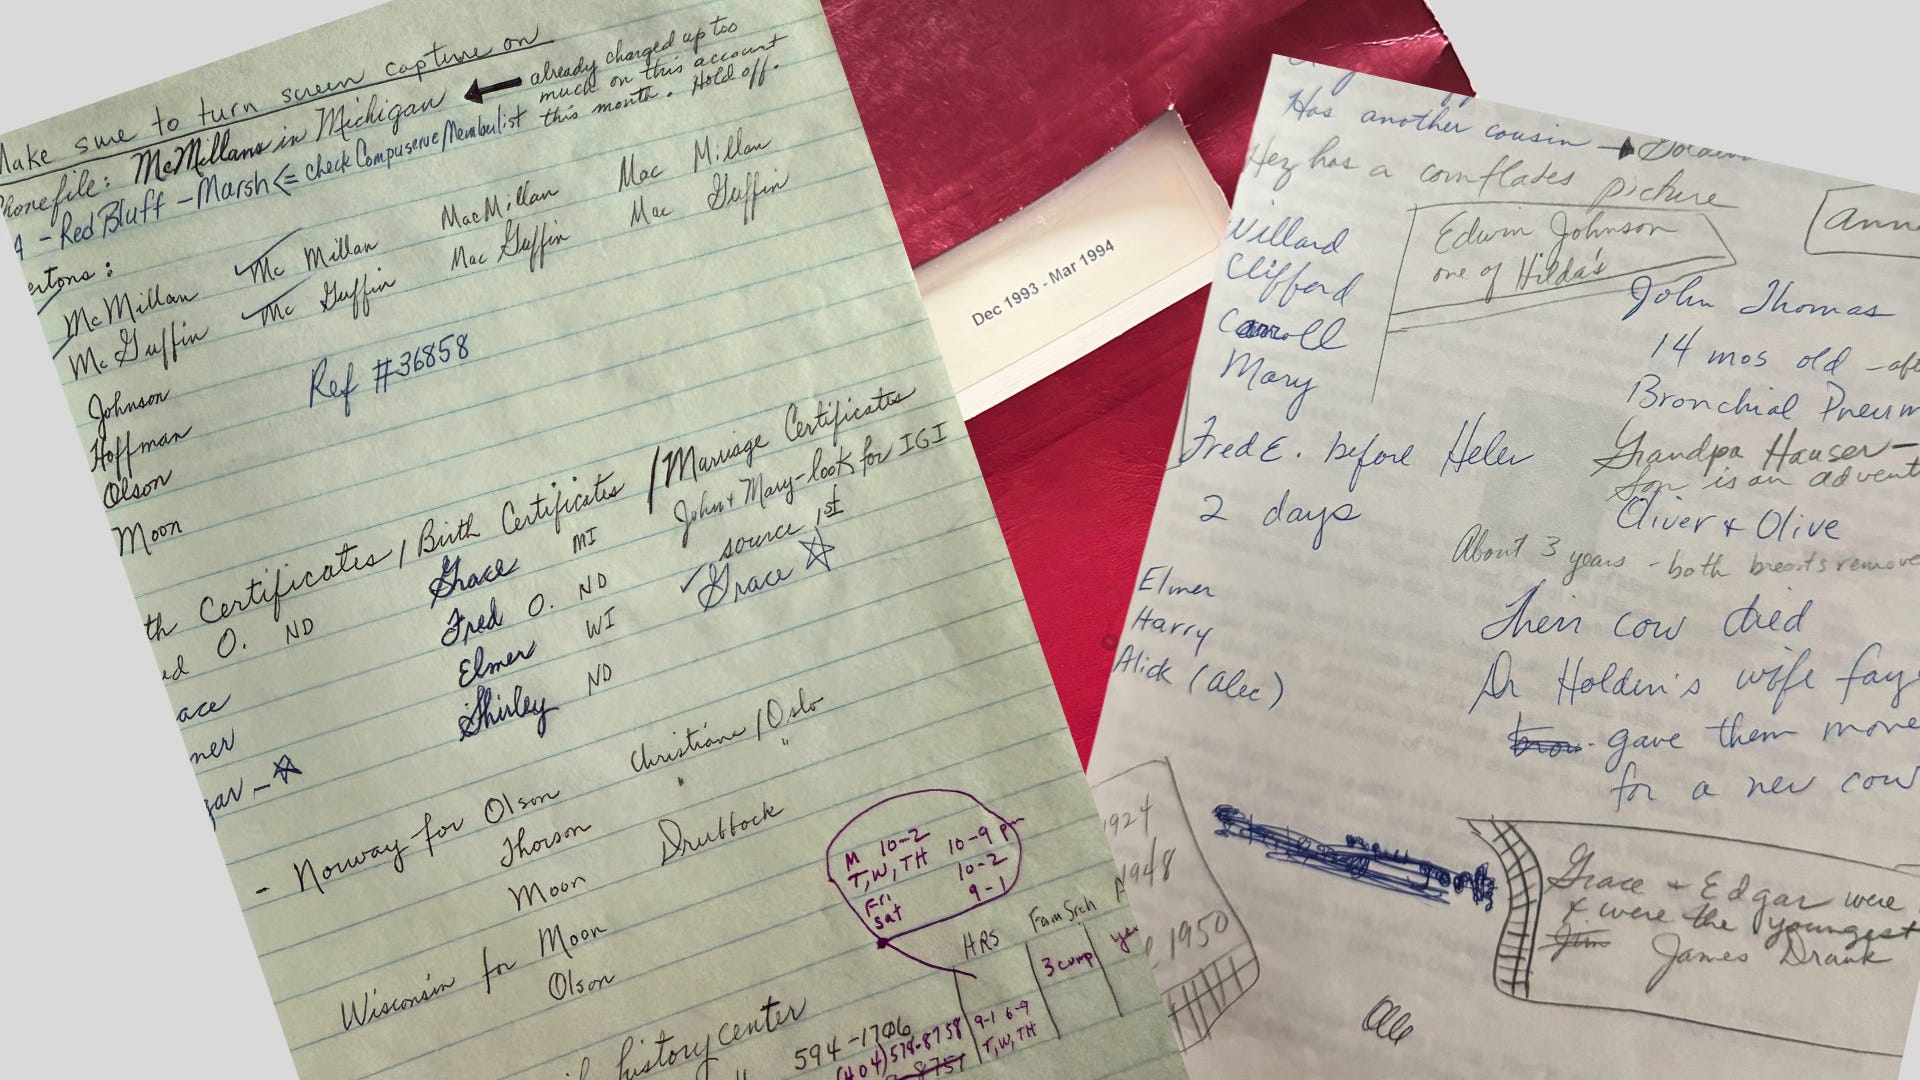 Make sure to turn screen capture on
Phonefile: McMillans in Michigan ← already charged up too
much on this account
this month. Hold off.
- Red Bluff - Marsh <= check Compuserve/Memberlist
McMillan Mc Millan MacMillan Mac Millan
McGuffin Mc Guffin Mac Guffin Mac Guffin
Johnson
Hoffman
Olson
Moon
Ref #36858
th Certificates / Birth Certificates / Marriage Certificates
O. ND
ace
mer
gar -
Grace MI
Fred O. ND
Elmer WI
Shirley ND
John + Mary - look for IGI
source 1st
Grace
- Norway for Olson Christiana / Oslo
Thorson " "
Moon Drubbock
Wisconsin for Moon
Olson
history center
594-1706
(404) 578-8758
8757
M 10-2
T, W, TH 10-9 pm
Fri 10-2
Sat 9-1
HRS Fam Srch
3 comp
9-1 6-9
T, W, TH
Dec 1993 - Mar 1994
Has another cousin →
Hez has a cornflates picture
Willard
Clifford
Carroll
Mary
Edwin Johnson
one of Hilda's
Ann
John Thomas
14 mos old -
Bronchial Pneum
Fred E. before Helen
2 days
Grandpa Hauser -
Son is an advent
Oliver + Olive
About 3 years - both breasts remove
Elmer
Harry
Alick (Alec)
Their cow died
Dr Holden's wife Fay
gave them mone
for a new cow
1924
1948
1950
Grace + Edgar were
+ were the youngest
Jim James Drank